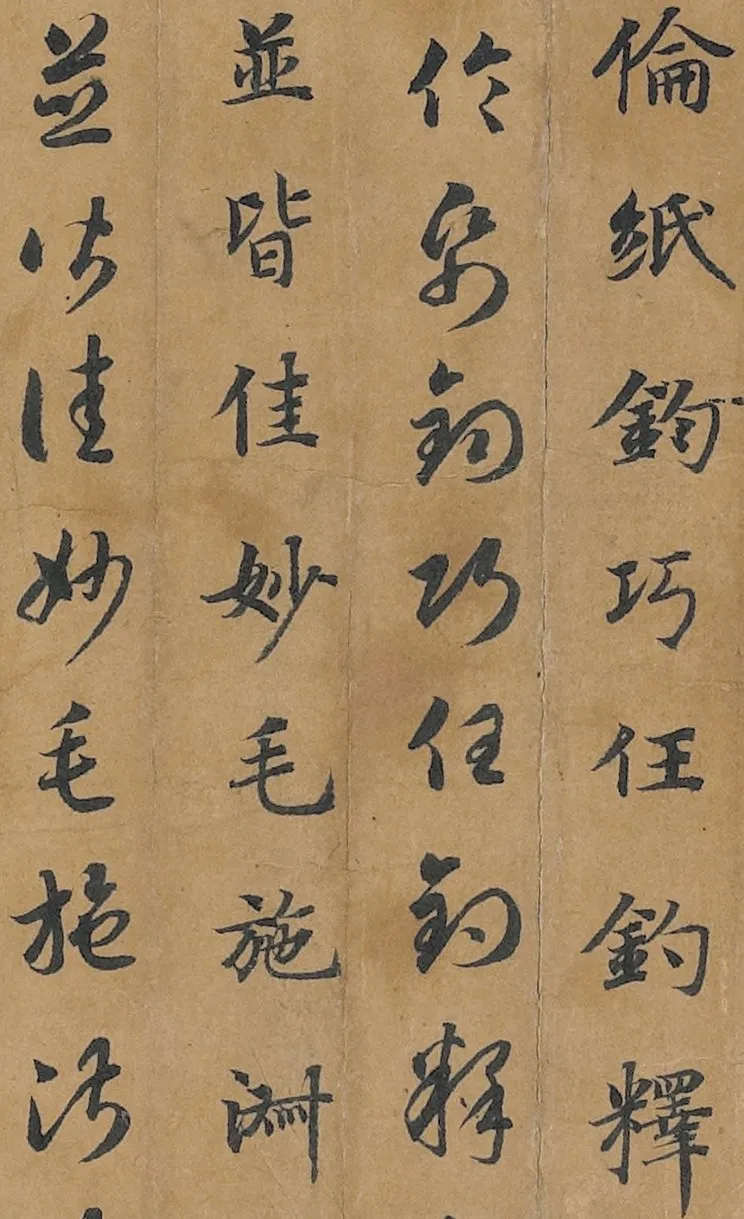 倫紙鈞巧任釣釋
倫紙鈞巧任釣釋
並皆佳妙毛施淑
並皆佳妙毛施淑